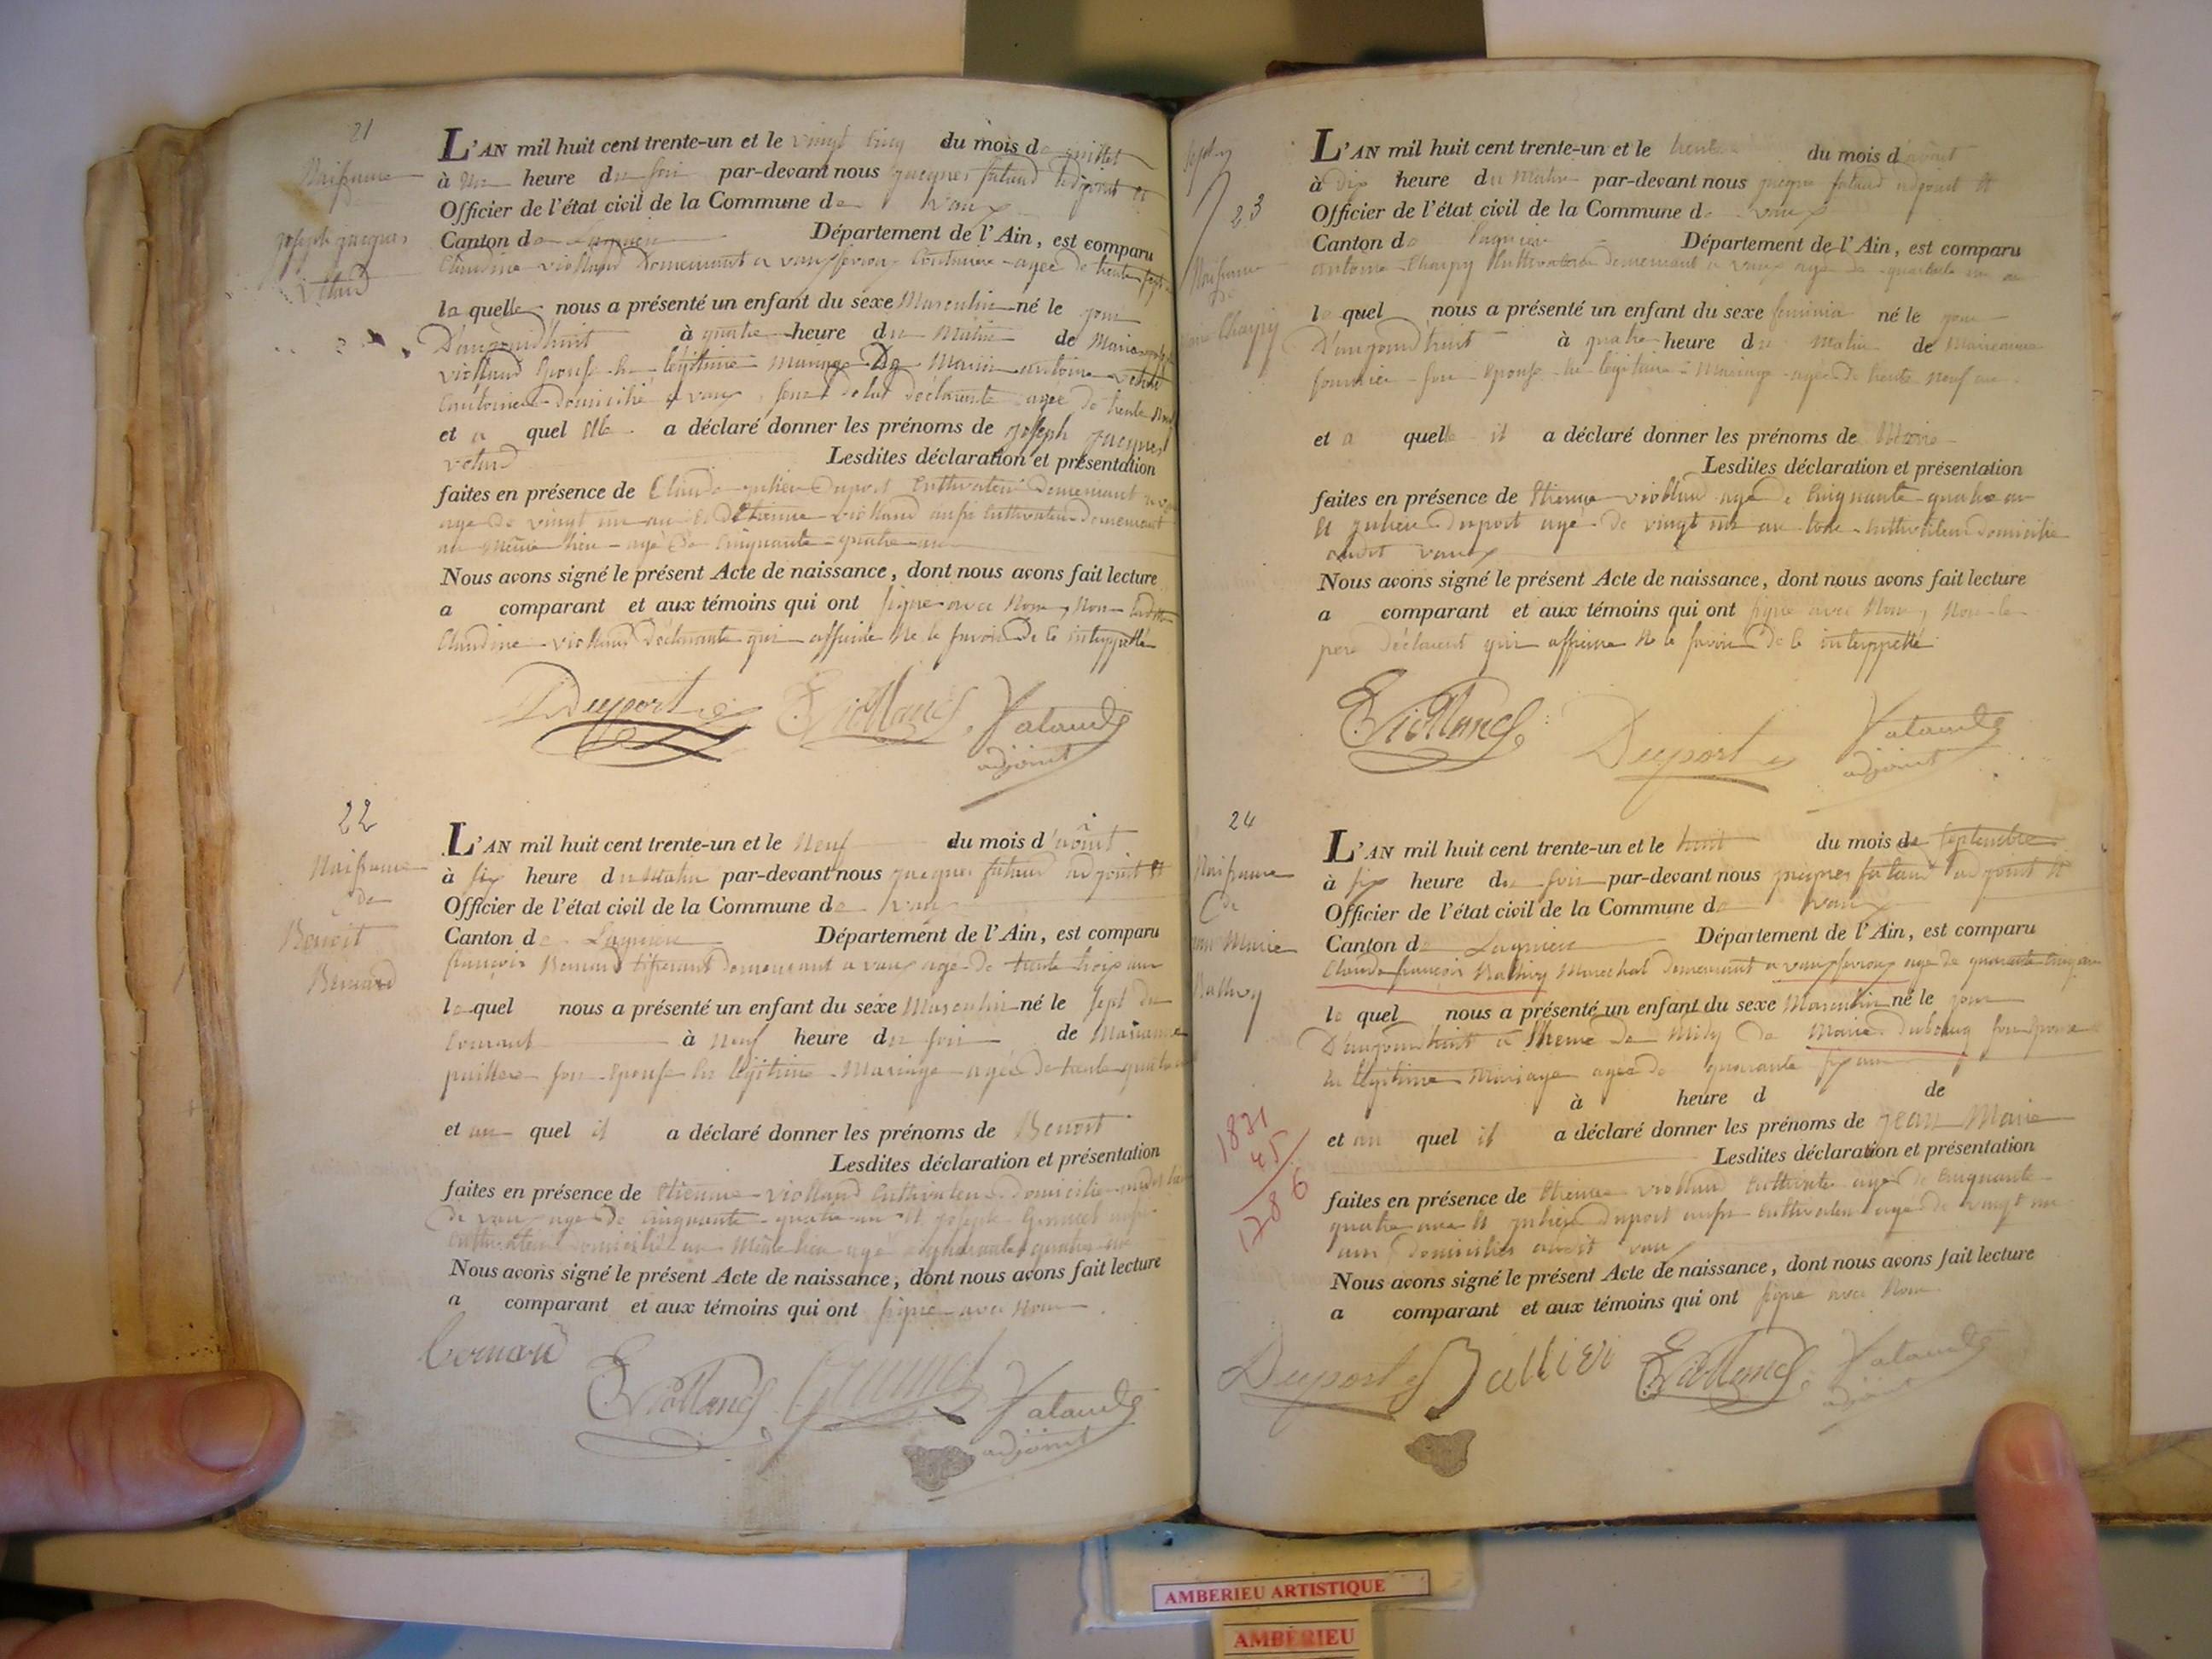 21
Naissance
joseph jacques
L'AN mil huit cent trente-un et le vingt cinq du mois de juillet
à une heure du soir par-devant nous jacques fataud adjoint et
Officier de l'état civil de la Commune de vaux
Canton de Lagnieu Département de l'Ain, est comparu
Claudine viollaud demeurant a vaux couturiere agée de trente sept
la quelle nous a présenté un enfant du sexe Masculin né le jour
D'aujourd'huit à quatre heure du Matin de Marianne
viollaud légitime mariage De antoine
domicilié a vaux, de la déclarante agée de trente
et a quel elle a déclaré donner les prénoms de joseph jacques
Lesdites déclaration et présentation
faites en présence de Claude julien Duport Cultivateur demeurant
agé de vingt un an et d'Etienne viollaud aussi cultivateur demeurant
au même lieu agé de cinquante quatre an
Nous avons signé le présent Acte de naissance, dont nous avons fait lecture
a comparant et aux témoins qui ont signé avec Nous, Non ladite
Claudine viollaud déclarante qui affirme ne le savoir De ce interppellé
Duport EViolland Fataud
adjoint
22
Naissance
de
Benoit
Bernard
L'AN mil huit cent trente-un et le Neuf du mois d'aôut
à six heure du Matin par-devant nous jacques fataud adjoint et
Officier de l'état civil de la Commune de vaux
Canton de Lagnieu Département de l'Ain, est comparu
françois Bernard tisserant demeurant a vaux agé de trente trois an
le quel nous a présenté un enfant du sexe Masculin né le sept du
Courant à Neuf heure du soir de Marianne
son Epouse en légitime Mariage agée de trente quatre
et au quel il a déclaré donner les prénoms de Benoit
Lesdites déclaration et présentation
faites en présence de Etienne viollaud Cultivateur domicilié
de vaux agé de cinquante quatre an et joseph
cultivateur domicilié au Même lieu agé quarante quatre an
Nous avons signé le présent Acte de naissance, dont nous avons fait lecture
a comparant et aux témoins qui ont signé avec Nous
bernard
EViolland Fataud
adjoint
23
Naissance
de
Charpy
L'AN mil huit cent trente-un et le trente du mois d'août
à dix heure du Matin par-devant nous jacques fataud adjoint et
Officier de l'état civil de la Commune de vaux
Canton de Lagnieu Département de l'Ain, est comparu
antoine Charpy Cultivateur demeurant a vaux agé de quarante
le quel nous a présenté un enfant du sexe feminin né le jour
D'aujourd'huit à quatre heure du Matin de Marianne
fournier son Epouse en légitime Mariage agée de trente neuf an
et a quelle il a déclaré donner les prénoms de Marie
Lesdites déclaration et présentation
faites en présence de Etienne viollaud agé de Cinquante quatre an
et julien Duport agé de vingt un an tous Cultivateur domicilié
audit vaux
Nous avons signé le présent Acte de naissance, dont nous avons fait lecture
a comparant et aux témoins qui ont signé avec Nous, Non le
pere déclarent qui affirme ne le savoir De ce interppellé
EViolland Duport Fataud
adjoint
24
Naissance
De
Marie
Rathivy
1831
45
1786
L'AN mil huit cent trente-un et le huit du mois de septembre
à six heure du soir par-devant nous jacques fataud adjoint et
Officier de l'état civil de la Commune de vaux
Canton de Lagnieu Département de l'Ain, est comparu
Claude françois Marechal demeurant a vaux agé de quarante cinq an
le quel nous a présenté un enfant du sexe Masculin né le jour
D'aujourd'huit a l'heure de Midy de Marie dubourg son Epouse
en légitime Mariage agée de quarante six ans
à heure d de
et au quel il a déclaré donner les prénoms de jean Marie
Lesdites déclaration et présentation
faites en présence de Etienne viollaud Cultivateur agé de Cinquante
quatre ans et julien Duport aussi Cultivateur agé de vingt un
ans domicilies audit vaux
Nous avons signé le présent Acte de naissance, dont nous avons fait lecture
a comparant et aux témoins qui ont signé avec Nous
Duport EViolland Fataud
adjoint
AMBERIEU ARTISTIQUE
AMBÉRIEU